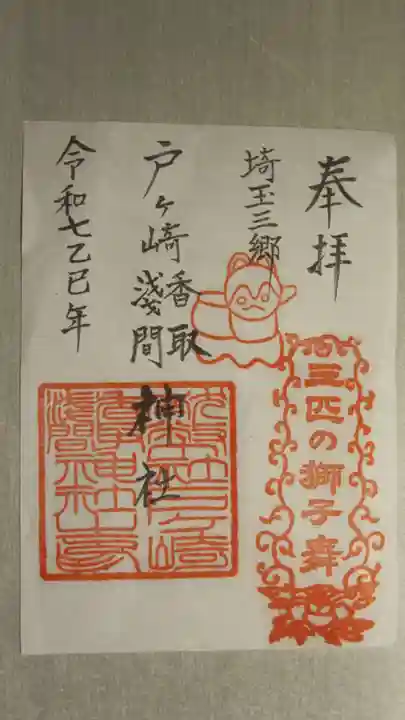 奉拝
埼玉三郷
三匹の獅子舞
戸ヶ崎香取浅間神社
令和七乙巳年